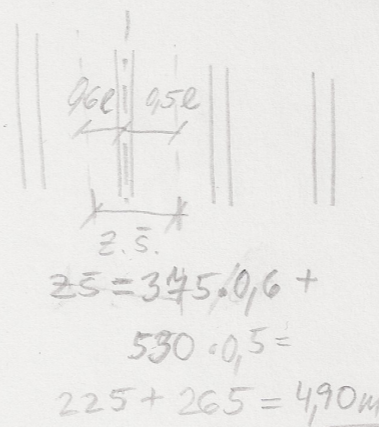 0,6l 0,5l
z.š.
zš = 375·0,6 +
530·0,5=
225+265=4,90m